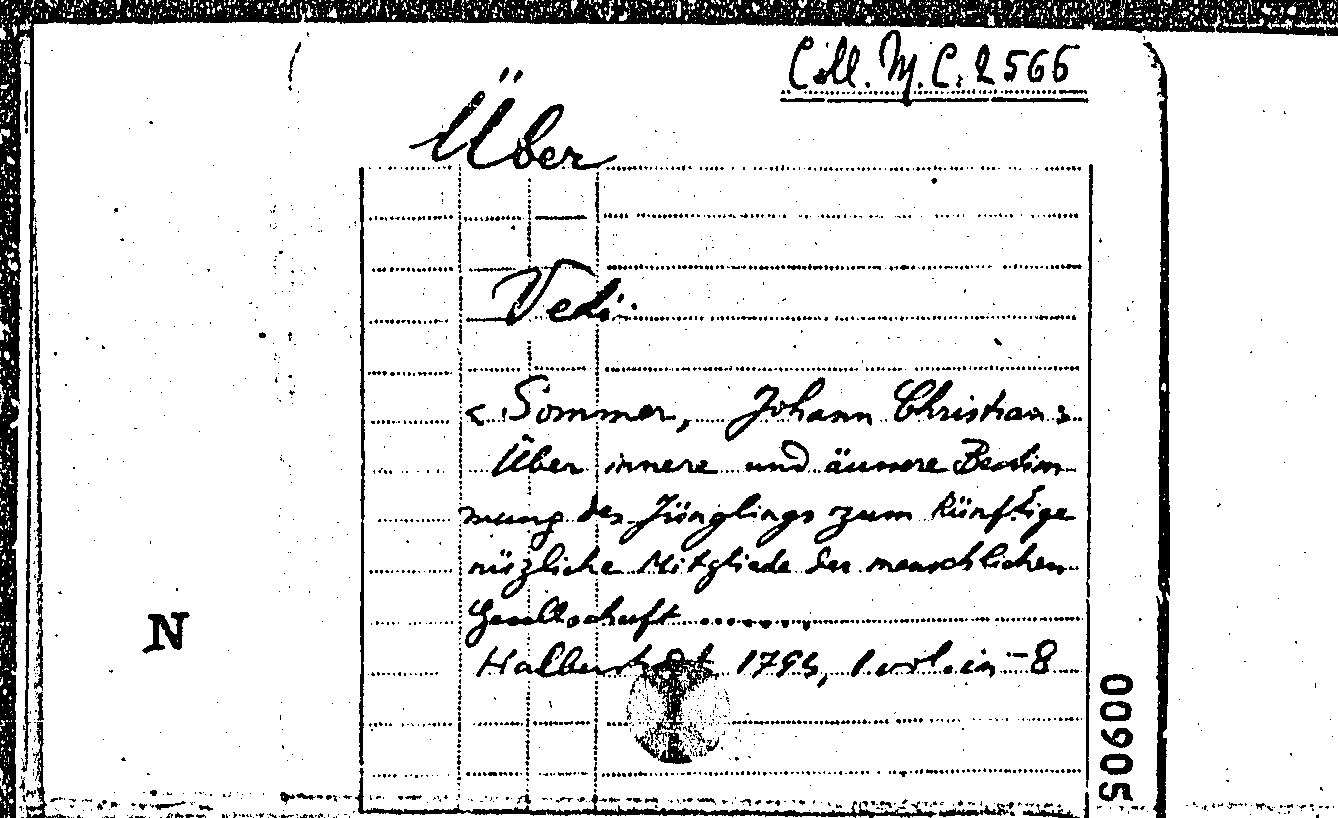 Coll. M. C. 2566
Über
Vedi:
< Sommer, Johann Christian >
Über innere und äussere Bestim
mung des Jünglings zum künftige
nüzliche Mitgliede der menschlichen
Gesellschaft ........
N
Halberstadt, 1 vol. in-8
00905